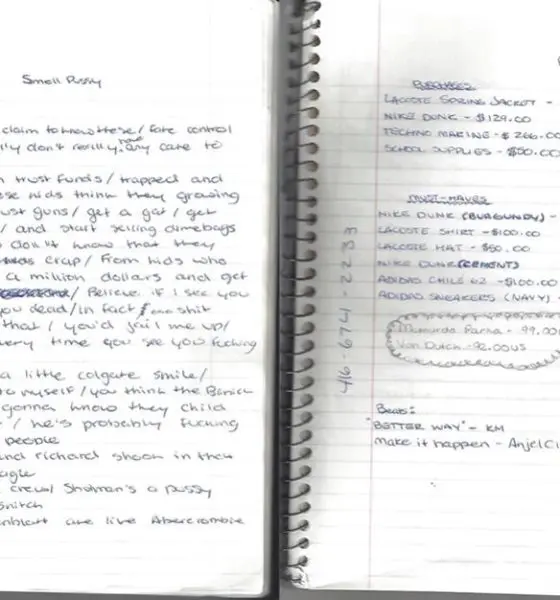 Small Pussy
claim to know these/ fake control
don't really any care to
trust funds/ trapped and
kids think they growing
guns/ get a gat/ get
/ and start selling dimebags
don't know that they
crap/ From kids who
a million dollars and get
/ Believe if I see you
you dead/in fact/ shit
that/ you'd jail me up/
every time you see you fucking
a little colgate smile/
to myself/ you think the
gonna know they child
/ he's probably fucking
people
and richard shook in they
crew/ Shahman's a pussy
Snitch
are like Abercrombie
PURCHASES
LACOSTE SPRING JACKET -
NIKE DUNK - $129.00
TECHNO MARINE - $266.0
SCHOOL SUPPLIES - $50.00
MUST-HAVES
NIKE DUNK (BURGUNDY) -
LACOSTE SHIRT - $100.00
LACOSTE HAT - $50.00
NIKE DUNK (CEMENT)
ADIDAS CHILE 62 - $100.00
ADIDAS SNEAKERS (NAVY)
Parka - 99.00
Von Dutch - 92.00US
416-674-2233
Beats:
"BETTER WAY" - KM
make it happen - AnjelCi